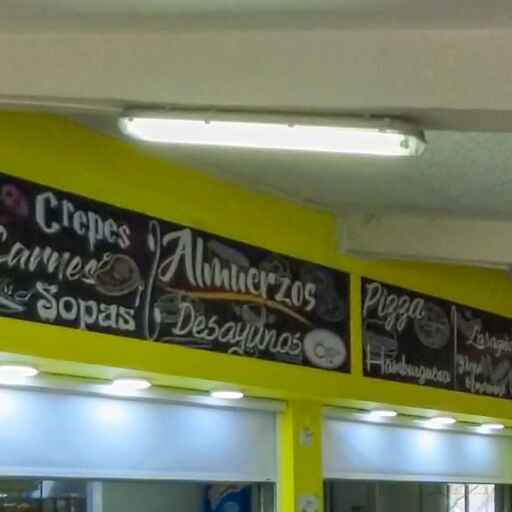 Crepes
Carnes
Sopas
Almuerzos
Desayunos
Pizza
Hamburguesa